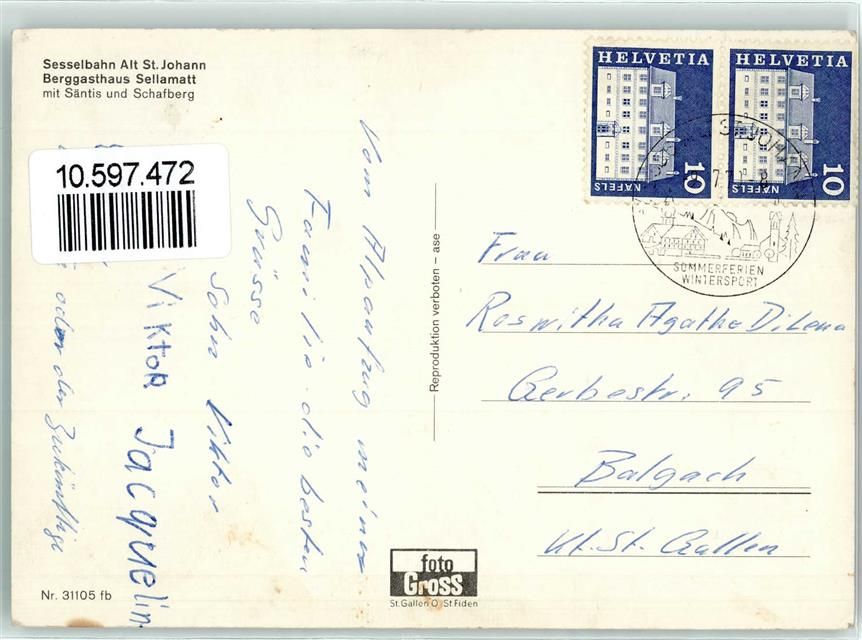 Sesselbahn Alt St. Johann
Berggasthaus Sellamatt
mit Säntis und Schafberg
10.597.472
Vom Alpaufzug meiner
Familie die besten
Grüsse
Sohn Viktor
VIKTOR Jacquelin
oder der Zukünftige
Nr. 31105 fb
Reproduktion verboten – ase
foto
Gross
St.Gallen O St.Fiden
HELVETIA
10
NÄFELS
HELVETIA
10
NÄFELS
SOMMERFERIEN
WINTERSPORT
Frau
Roswitha Agatha DiLena
Gerbestr. 95
Balgach
Kt. St. Gallen